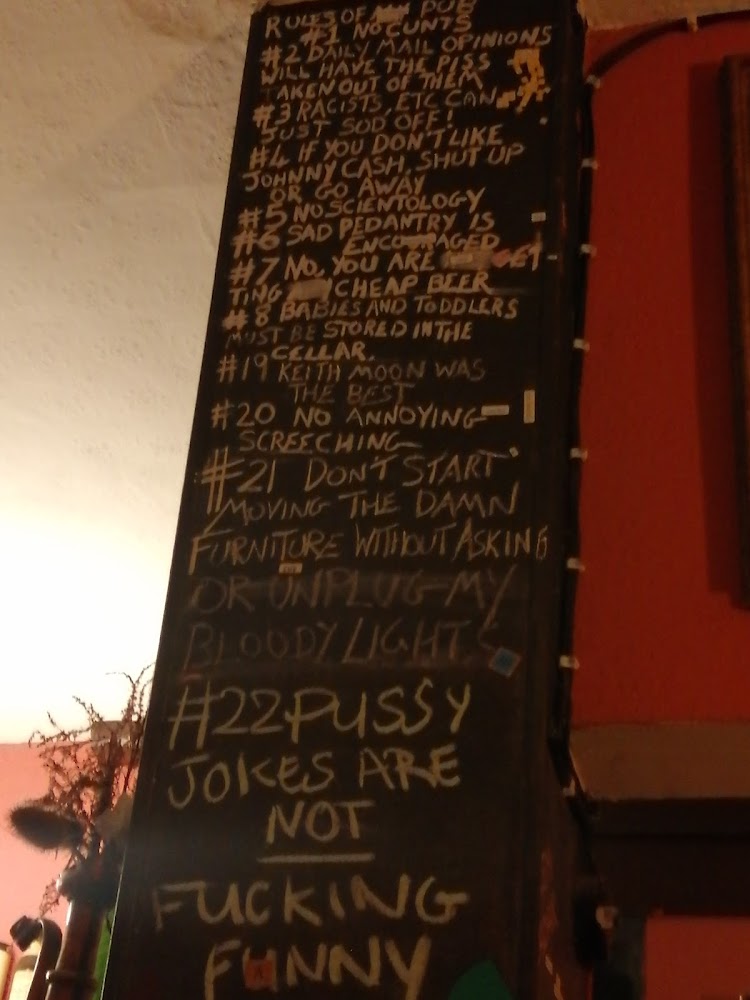 RULES OF PUB
#1 NO CUNTS
#2 DAILY MAIL OPINIONS
WILL HAVE THE PISS
TAKEN OUT OF THEM
#3 RACISTS, ETC CAN
JUST SOD OFF!
#4 IF YOU DON'T LIKE
JOHNNY CASH, SHUT UP
OR GO AWAY
#5 NO SCIENTOLOGY
#6 SAD PEDANTRY IS
ENCOURAGED
#7 NO, YOU ARE GET-
TING CHEAP BEER
#8 BABIES AND TODDLERS
MUST BE STORED IN THE
CELLAR.
#19 KEITH MOON WAS
THE BEST
#20 NO ANNOYING
SCREECHING
#21 DONT START
MOVING THE DAMN
FURNITURE WITHOUT ASKING
OR UNPLUG MY
BLOODY LIGHTS
#22 PUSSY
JOKES ARE
NOT
FUCKING
FUNNY